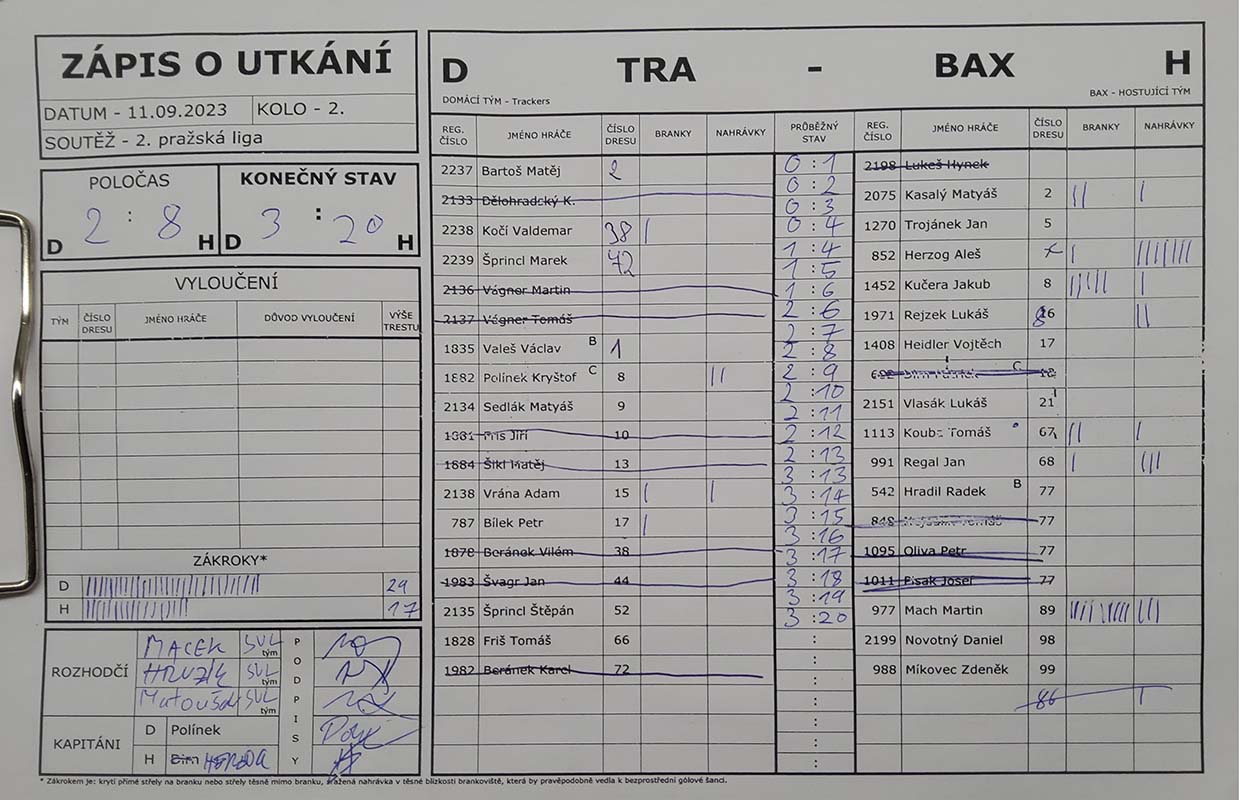 ZÁPIS O UTKÁNÍ
DATUM - 11.09.2023 KOLO - 2.
SOUTĚŽ - 2. pražská liga
POLOČAS KONEČNÝ STAV
D 2 : 8 H D 3 : 20 H
VYLOUČENÍ
TÝM ČÍSLO DRESU JMÉNO HRÁČE DŮVOD VYLOUČENÍ VÝŠE TRESTU
ZÁKROKY*
D 29
H 17
ROZHODČÍ
MACEK SVL tým
HRUZÍK SVL tým
SVL tým
PODPISY
KAPITÁNI
D Polínek
H
D TRA - BAX H
DOMÁCÍ TÝM - Trackers BAX - HOSTUJÍCÍ TÝM
REG. ČÍSLO JMÉNO HRÁČE ČÍSLO DRESU BRANKY NAHRÁVKY PRŮBĚŽNÝ STAV REG. ČÍSLO JMÉNO HRÁČE ČÍSLO DRESU BRANKY NAHRÁVKY
2237 Bartoš Matěj 2
2133 Dělohradcký K.
2238 Kočí Valdemar 38 |
2239 Šprincl Marek 72
2136 Vágner Martin
2137 Vágner Tomáš
1835 Valeš Václav B 1
1882 Polínek Kryštof C 8 ||
2134 Sedlák Matyáš 9
1881 Fris Jiří 10
1884 Šikl Matěj 13
2138 Vrána Adam 15 | |
787 Bílek Petr 17 |
1878 Beránek Vilém 38
1983 Švagr Jan 44
2135 Šprincl Štěpán 52
1828 Friš Tomáš 66
1982 Beránek Karel 72
0:1
0:2
0:3
0:4
1:4
1:5
1:6
2:6
2:7
2:8
2:9
2:10
2:11
2:12
2:13
3:13
3:14
3:15
3:16
3:17
3:18
3:19
3:20
2198 Lukeš Hynek
2075 Kasalý Matyáš 2 || |
1270 Trojánek Jan 5
852 Herzog Aleš | |||||||
1452 Kučera Jakub 8 ||||| |
1971 Rejzek Lukáš ||
1408 Heidler Vojtěch 17
C 18
2151 Vlasák Lukáš 21
1113 Kouba Tomáš 67 || |
991 Regal Jan 68 | |||
542 Hradil Radek B 77
848 77
1095 Oliva Petr 77
1011 Pisak Josef 77
977 Mach Martin 89 |||||||||| |||
2199 Novotný Daniel 98
988 Míkovec Zdeněk 99
86
* Zákrokem je: krytí přímé střely na branku nebo střely těsně mimo branku, sražená nahrávka v těsné blízkosti brankoviště, která by pravěpodobně vedla k bezprostřední gólové šanci.